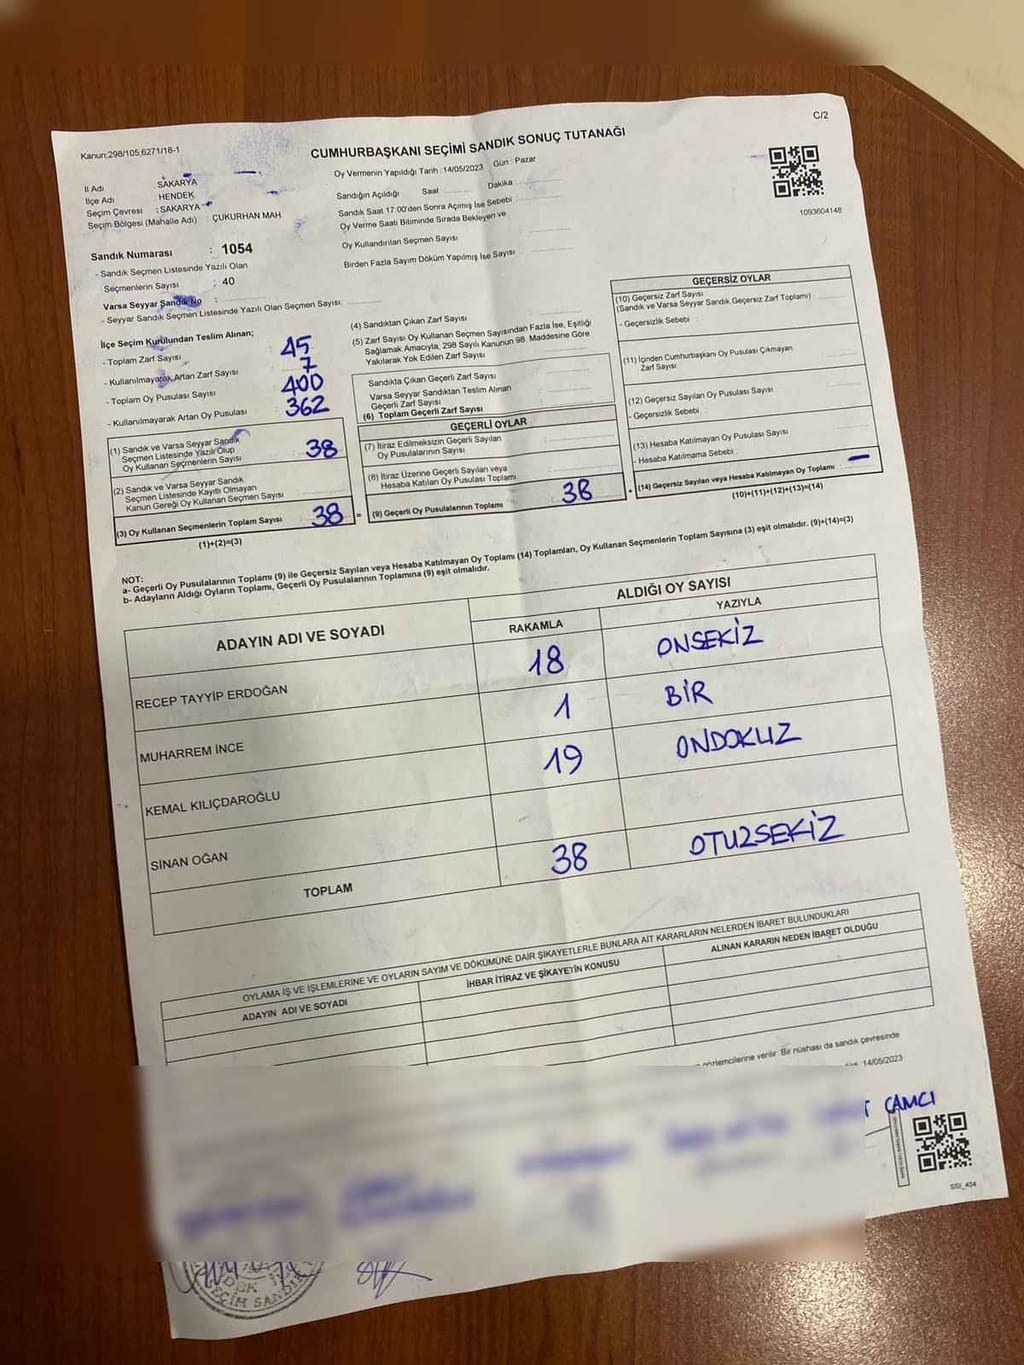 C/2
Kanun:298/105,6271/18-1
CUMHURBAŞKANI SEÇİMİ SANDIK SONUÇ TUTANAĞI
İl Adı SAKARYA
İlçe Adı HENDEK
Seçim Çevresi : SAKARYA
Seçim Bölgesi (Mahalle Adı) : ÇUKURHAN MAH
Sandık Numarası : 1054
- Sandık Seçmen Listesinde Yazılı Olan
Seçmenlerin Sayısı : 40
Varsa Seyyar Sandık No :
- Seyyar Sandık Seçmen Listesinde Yazılı Olan Seçmen Sayısı
Oy Vermenin Yapıldığı Tarih : 14/05/2023 Gün : Pazar
Sandığın Açıldığı Saat Dakika
Sandık Saat 17:00'den Sonra Açımış İse Sebebi
Oy Verme Saati Bitiminde Sırada Bekleyen ve
Oy Kullandırılan Seçmen Sayısı
Birden Fazla Sayım Döküm Yapılmış İse Sayısı
1093604148
İlçe Seçim Kurulundan Teslim Alınan;
- Toplam Zarf Sayısı 45
- Kullanılmayarak Artan Zarf Sayısı 7
- Toplam Oy Pusulası Sayısı 400
- Kullanılmayarak Artan Oy Pusulası 362
(1) Sandık ve Varsa Seyyar Sandık
Seçmen Listesinde Yazılı Olup
Oy Kullanan Seçmenlerin Sayısı 38
(2) Sandık ve Varsa Seyyar Sandık
Seçmen Listesinde Kayıtlı Olmayan
Kanun Gereği Oy Kullanan Seçmen Sayısı
(3) Oy Kullanan Seçmenlerin Toplam Sayısı 38
(1)+(2)=(3)
(4) Sandıktan Çıkan Zarf Sayısı
(5) Zarf Sayısı Oy Kullanan Seçmen Sayısından Fazla İse, Eşitliği
Sağlamak Amacıyla, 298 Sayılı Kanunun 98. Maddesine Göre
Yakılarak Yok Edilen Zarf Sayısı
Sandıkta Çıkan Geçerli Zarf Sayısı
Varsa Seyyar Sandıktan Teslim Alınan
Geçerli Zarf Sayısı
(6) Toplam Geçerli Zarf Sayısı
GEÇERLİ OYLAR
(7) İtiraz Edilmeksizin Geçerli Sayılan
Oy Pusulalarının Sayısı
(8) İtiraz Üzerine Geçerli Sayılan veya
Hesaba Katılan Oy Pusulası Toplamı
= (9) Geçerli Oy Pusulalarının Toplamı 38
GEÇERSİZ OYLAR
(10) Geçersiz Zarf Sayısı
(Sandık ve Varsa Seyyar Sandık Geçersiz Zarf Toplamı)
- Geçersizlik Sebebi
(11) İçinden Cumhurbaşkanı Oy Pusulası Çıkmayan
Zarf Sayısı
(12) Geçersiz Sayılan Oy Pusulası Sayısı
- Geçersizlik Sebebi :
(13) Hesaba Katılmayan Oy Pusulası Sayısı
- Hesaba Katılmama Sebebi :
+ (14) Geçersiz Sayılan veya Hesaba Katılmayan Oy Toplamı : —
(10)+(11)+(12)+(13)=(14)
NOT:
a- Geçerli Oy Pusulalarının Toplamı (9) ile Geçersiz Sayılan veya Hesaba Katılmayan Oy Toplamı (14) Toplamları, Oy Kullanan Seçmenlerin Toplam Sayısına (3) eşit olmalıdır. (9)+(14)=(3)
b- Adayların Aldığı Oyların Toplamı, Geçerli Oy Pusulalarının Toplamına (9) eşit olmalıdır.
ADAYIN ADI VE SOYADI ALDIĞI OY SAYISI
RAKAMLA YAZIYLA
RECEP TAYYİP ERDOĞAN 18 ONSEKİZ
MUHARREM İNCE 1 BİR
KEMAL KILIÇDAROĞLU 19 ONDOKUZ
SİNAN OĞAN
TOPLAM 38 OTUZSEKİZ
OYLAMA İŞ VE İŞLEMLERİNE VE OYLARIN SAYIM VE DÖKÜMÜNE DAİR ŞİKAYETLERLE BUNLARA AİT KARARLARIN NELERDEN İBARET BULUNDUKLARI
ADAYIN ADI VE SOYADI İHBAR İTİRAZ VE ŞİKAYETİN KONUSU ALINAN KARARIN NEDEN İBARET OLDUĞU
gözlemcilerine verilir. Bir nüshası da sandık çevresinde
14/05/2023
T CAMCI
SSI_404
SEÇİM SANDIK